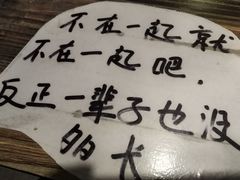 不在一起就
不在一起吧.
反正一辈子也没
多犬